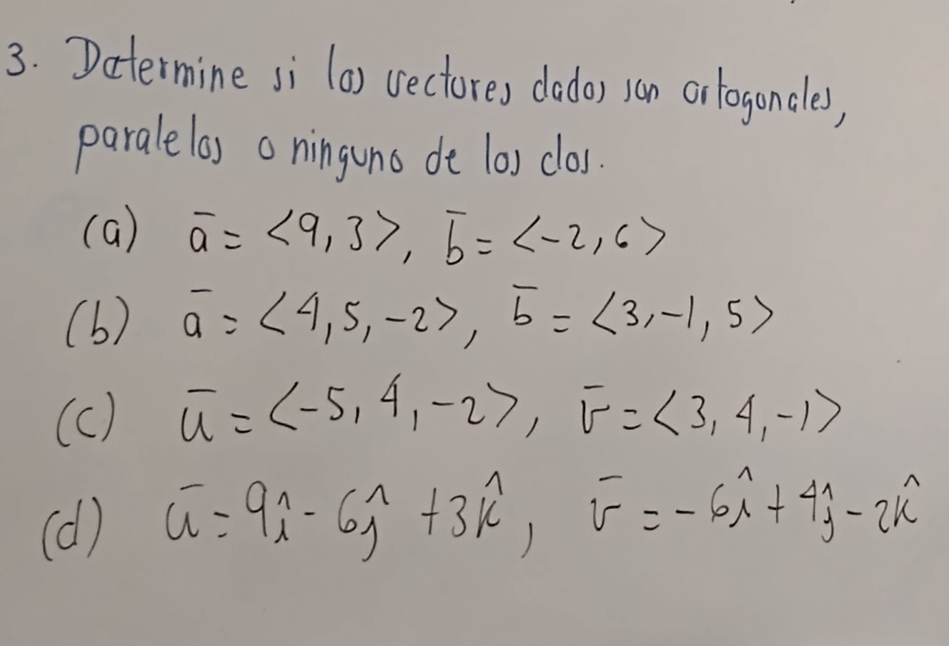 3. Determine si los vectores dados son ortogonales,
paralelos o ninguno de los dos.
(a) a̅ = <9,3>, b̅ = <-2,6>
(b) a̅ = <4,5,-2>, b̅ = <3,-1,5>
(c) u̅ = <-5,4,-2>, v̅ = <3,4,-1>
(d) u̅ = 9î - 6ĵ + 3k̂, v̅ = -6î + 4ĵ - 2k̂